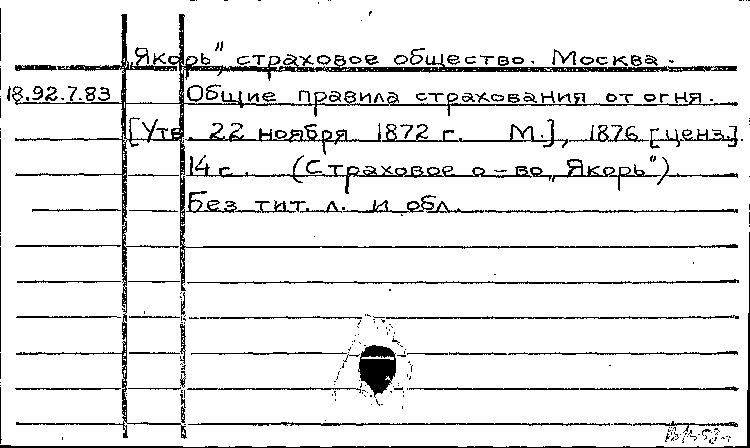 „Якорь", страховое общество. Москва.
18.92.7.83 Общие правила страхования от огня.
[Утв. 22 ноября 1872 г. М.], 1876 [ценз.]
14 с. (Страховое о-во „Якорь")
Без тит. л. и обл.